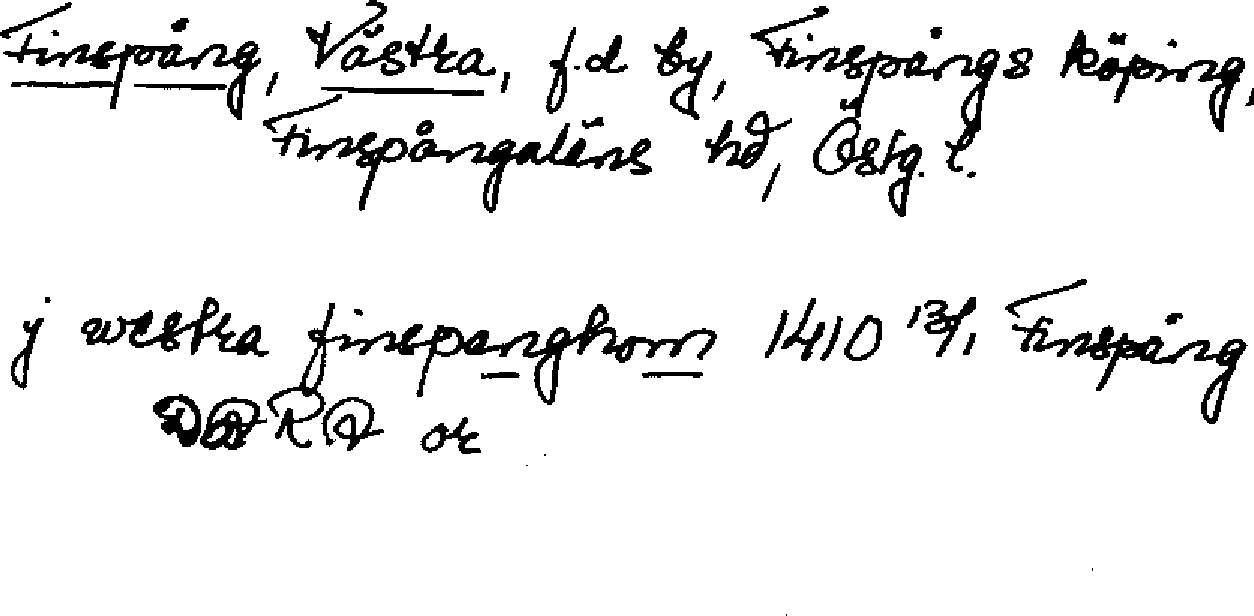 Finspång, Västra, f.d by, Finspångs köping,
Finspångaläns hd, Östg. l.
j westra finspanghom 1410 13/1 Finspång
or